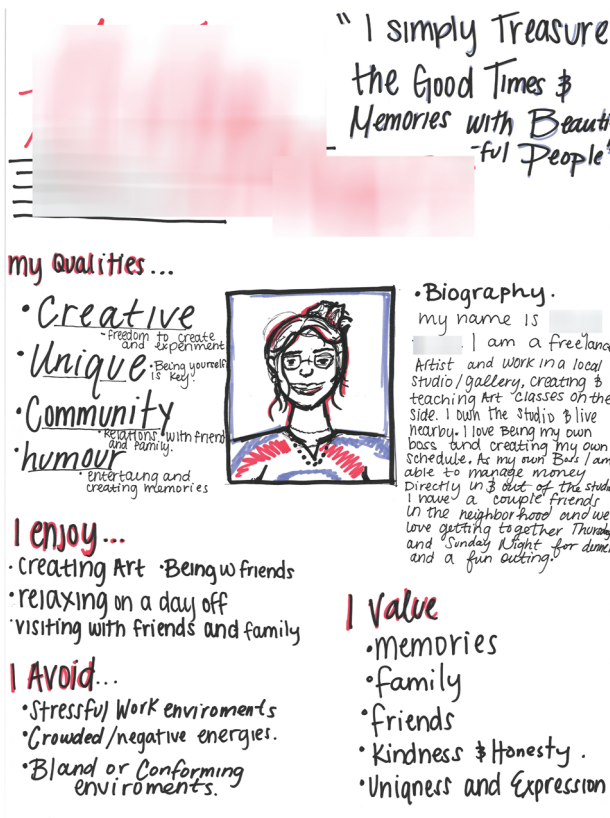 " I simply Treasure
the Good Times &
Memories with Beauti
-ful People"
my Qualities...
• Creative
- freedom to create
and experiment
• Unique
• Being yourself
is key!
• Community
• Relations with friend
and family.
• humour
• entertaing and
creating memories
• Biography.
my name is
. I am a freelanc
Artist and work in a local
studio/gallery, creating &
teaching Art classes on the
side. I own the studio & live
nearby. I love Being my own
boss and creating my own
schedule. As my own Boss I am
able to manage money
Directly in & out of the stud
I have a couple friends
in the neighborhood and we
love getting together Thursday
and Sunday Night for dinner
and a fun outing.
I enjoy...
• Creating Art • Being w friends
• relaxing on a day off
• visiting with friends and family
I Avoid...
• Stressful Work enviroments
• Crowded/negative energies.
• Bland or Conforming
enviroments.
I Value
• memories
• family
• friends
• Kindness & Honesty.
• Uniqness and Expression